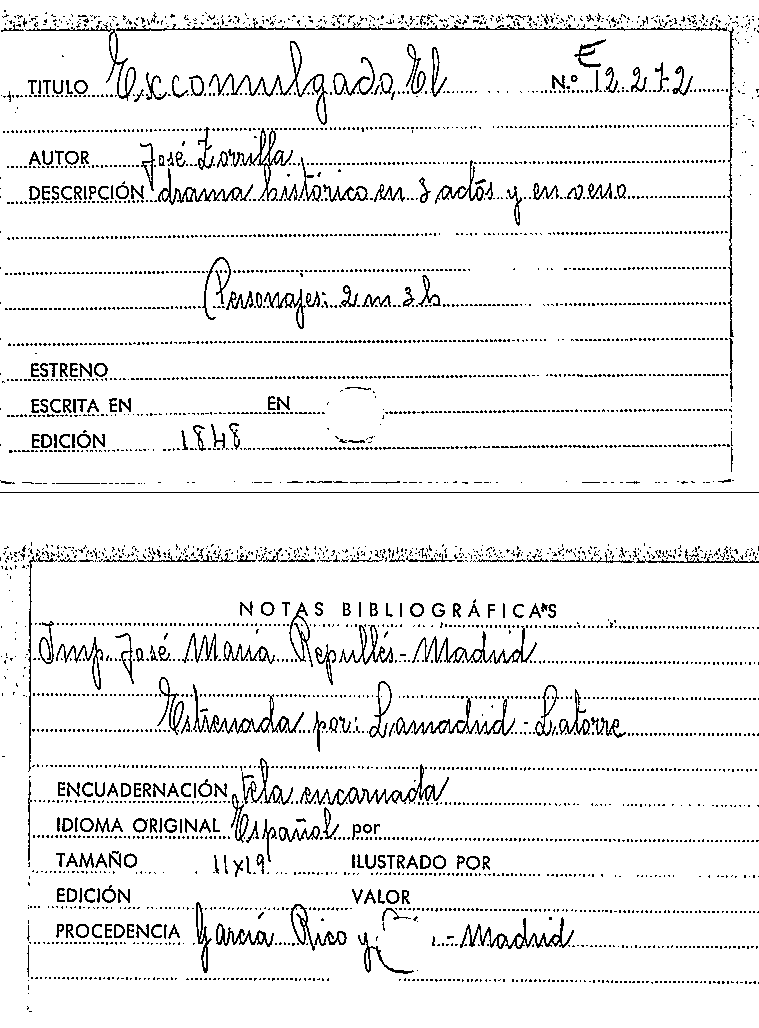 TITULO Excomulgado, El N.º E 12.272
AUTOR José Zorrilla
DESCRIPCIÓN drama histórico en 3 actos y en verso
Personajes: 2 m 3 h
ESTRENO
ESCRITA EN EN
EDICIÓN 1848
NOTAS BIBLIOGRÁFICAS
Imp. José María Repullés - Madrid
Estrenada por: Lamadrid - Latorre
ENCUADERNACIÓN tela encarnada
IDIOMA ORIGINAL Español por
TAMAÑO 11x19 ILUSTRADO POR
EDICIÓN VALOR
PROCEDENCIA García Rico y - Madrid